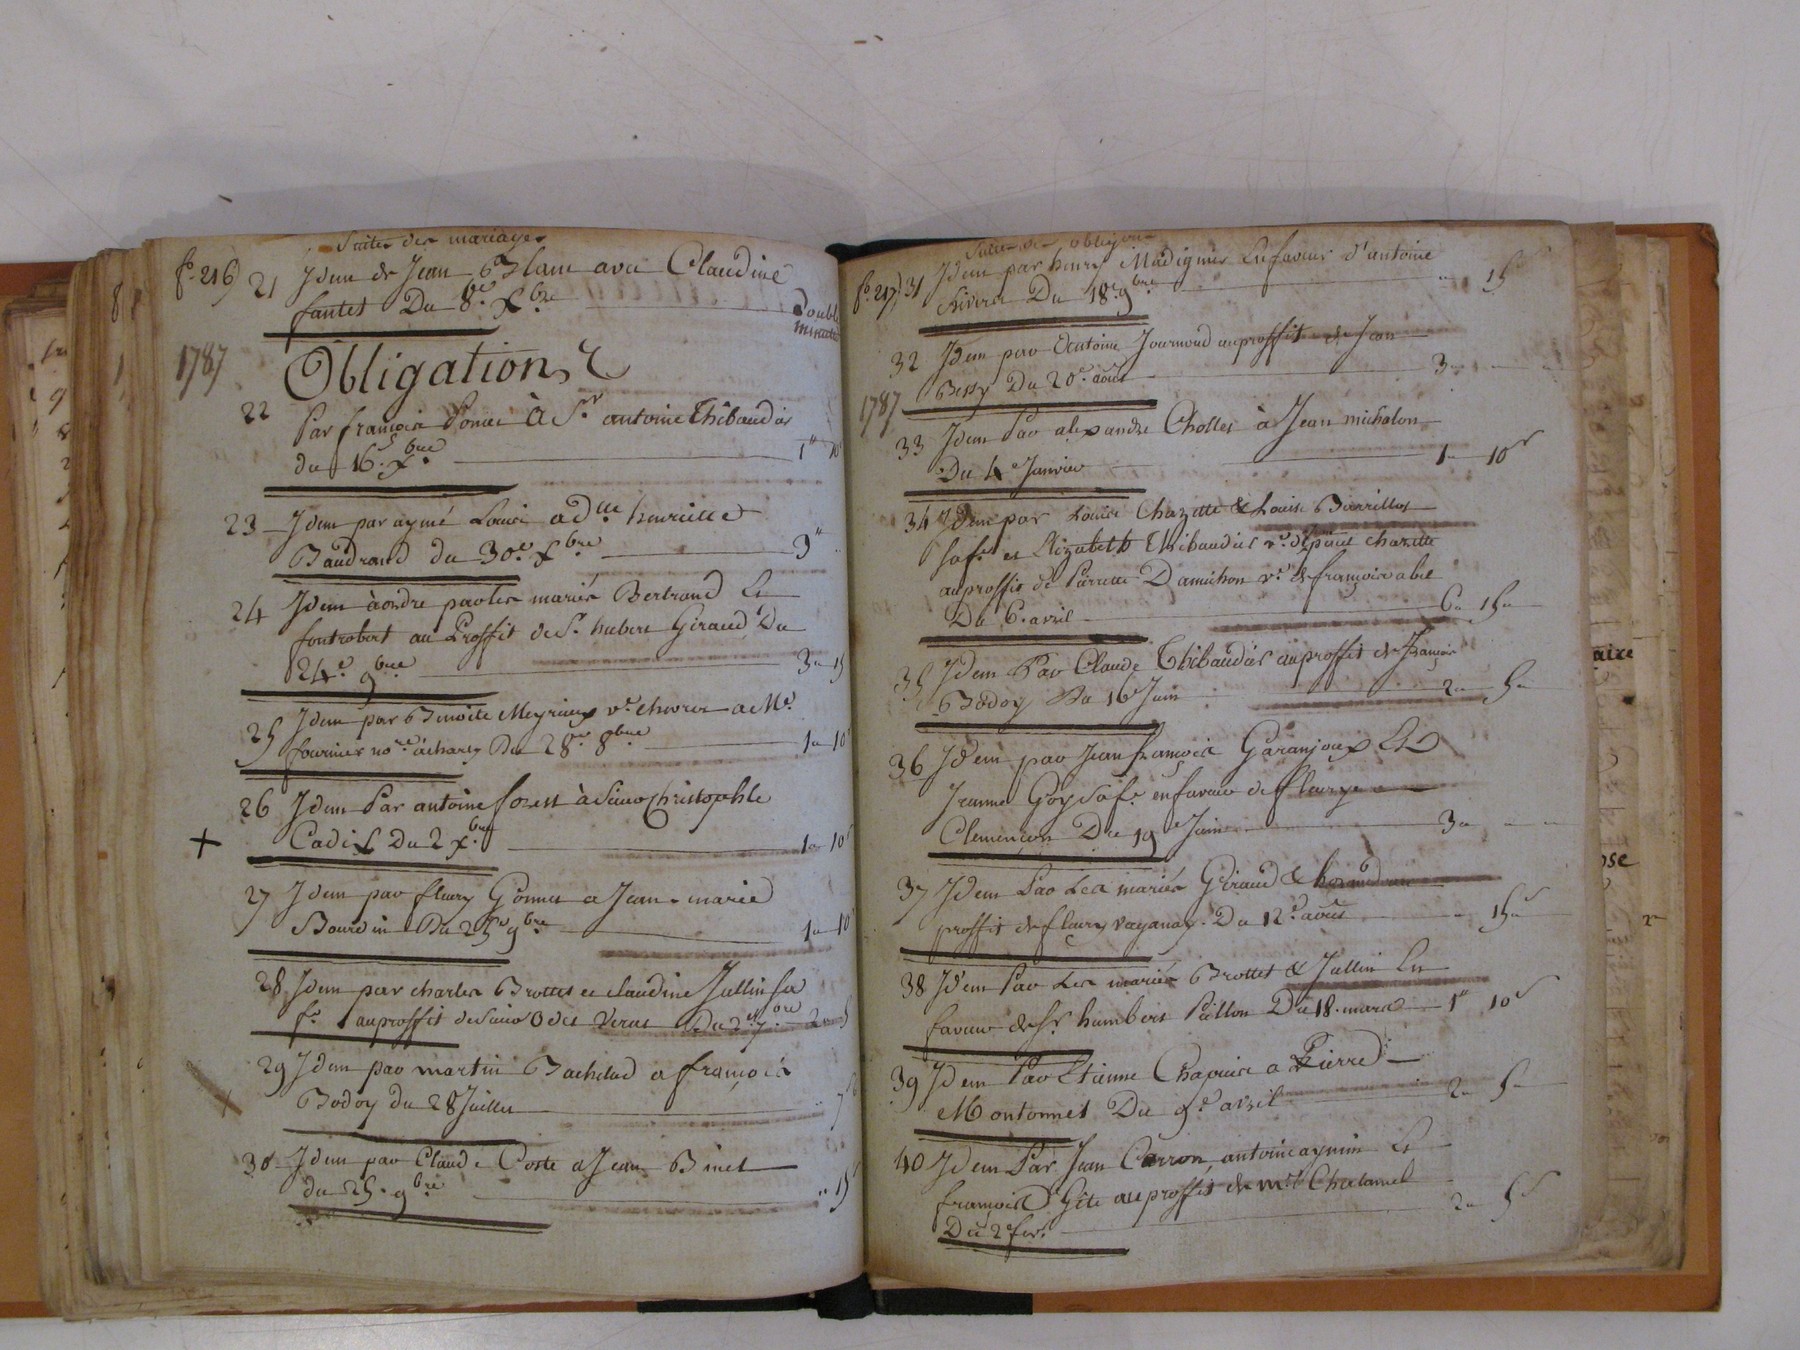 Suite des mariages
fo. 216) 21 Idem de Jean Blanc avec Claudine
fantet Du 8e. Xbre double
minutte
1787 Obligations
22 Par françois Poncet à Sr. antoine Thibaudié
du 16e. Xbre 1" 10
23 Idem par aymé Louis a dlle henriette
Baudrand du 30e. Xbre 3"
24 Idem à ordre par les mariés Bertrand Et
fontrobert au Proffit de Sr. hubert Giraud Du
24e. 9bre 3" 15
25 Idem par Benoite Meyrieux ve. chivrer a Me.
fournier nore. à charly Du 28e. 8bre 1" 10
26 Idem Par antoine forest à Sieur Christophle
+ Cadix Du 2 Xbre 1" 10s
27 Idem par fleury Gonnet a Jean-marie
Bourdin Du 25e 9bre 1" 10
28 Idem par charles Brottet et claudine Jullin sa
fe. au proffit de Sieur Odet Du 2e. 7bre 2" 5
29 Idem par martin Bachelud a françois
x Bodoy du 28 Juillet " 7s
30 Idem par Claude Coste a Jean Binet
du 25. 9bre " 15s
Suite des obligons
fo. 217) 31 Idem par henry Madignier En faveur d'antoine
Rivier Du 18e. 9bre " 15s
32 Idem par Antoine Journoud au proffit de Jean
Bessy Du 20e. août 3"
1787
33 Idem Par alexandre Chollet à Jean michalon
Du 4e Janvier 1" 10s
34 Idem par Louis Chazette & Louise Barrillot
sa fe. et Elizabeth Thibaudié ve. de pierre chazette
au proffit de Pierrette Damichon ve. de françois abel
Du 6. avril 6" 15"
35 Idem Par Claude Thibaudié au proffit de françois
Bodoy Du 16e Juin 2" 5"
36 Idem par Jean françois Garanjoux Et
Jeanne Goy sa fe. en faveur de fleurye
Clemençon Du 19e Juin 3"
37 Idem Par Les mariés Giraud &
proffit de fleury vaganay. Du 12e. août " 15s
38 Idem Par Les mariés Brottet & Jullin En
faveur de Sr. humbert Paillon Du 18. mars 1" 10s
39 Idem Par Etienne Chapuis a Pierre
Montonnet Du 9e. avril 2" 5"
40 Idem Par Jean Carron, antoine aymin Et
françois Gite au proffit de Mr. Chalamel
Du 2e fer. 2" 5s